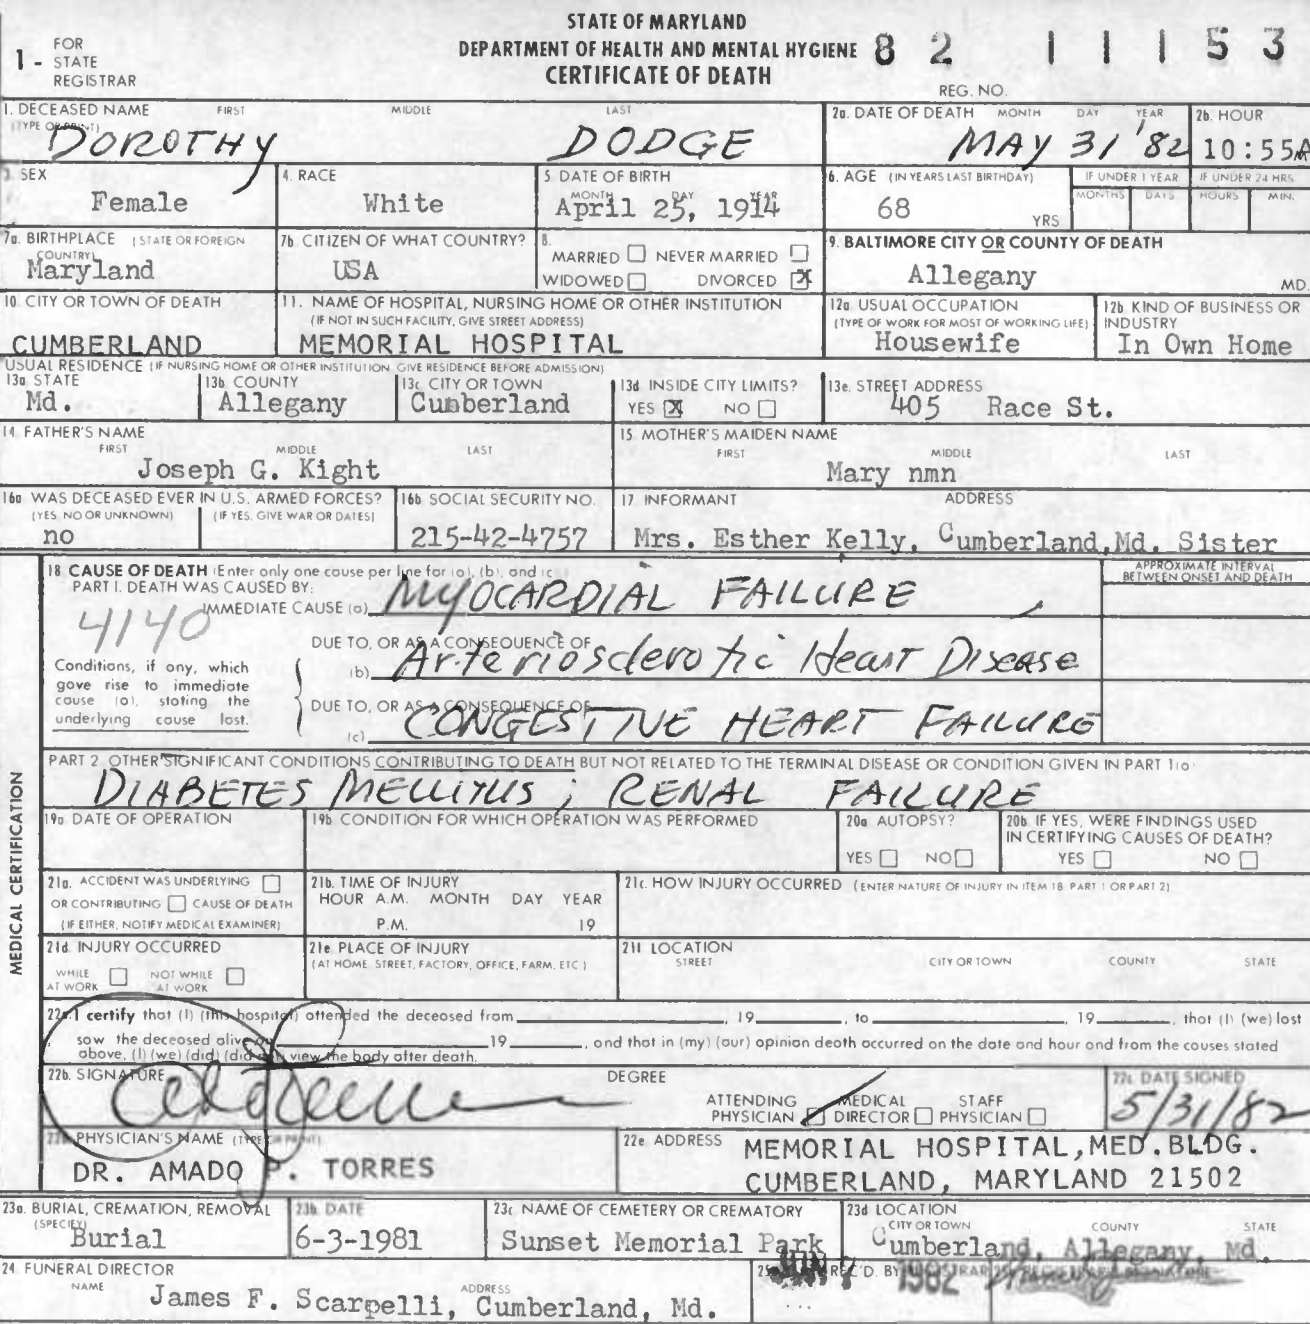 STATE OF MARYLAND
1 - FOR STATE REGISTRAR
DEPARTMENT OF HEALTH AND MENTAL HYGIENE
CERTIFICATE OF DEATH
82 11153
REG. NO.
1. DECEASED NAME (TYPE OR PRINT) FIRST MIDDLE LAST
DOROTHY DODGE
2a. DATE OF DEATH MONTH DAY YEAR
MAY 31 '82
2b. HOUR
10:55A
3. SEX
Female
4. RACE
White
5. DATE OF BIRTH MONTH DAY YEAR
April 25, 1914
6. AGE (IN YEARS LAST BIRTHDAY)
68 YRS
IF UNDER 1 YEAR MONTHS DAYS
IF UNDER 24 HRS HOURS MIN.
7a. BIRTHPLACE (STATE OR FOREIGN COUNTRY)
Maryland
7b. CITIZEN OF WHAT COUNTRY?
USA
8. MARRIED ☐ NEVER MARRIED ☐
WIDOWED ☐ DIVORCED ☒
9. BALTIMORE CITY OR COUNTY OF DEATH
Allegany MD.
10. CITY OR TOWN OF DEATH
CUMBERLAND
11. NAME OF HOSPITAL, NURSING HOME OR OTHER INSTITUTION
(IF NOT IN SUCH FACILITY, GIVE STREET ADDRESS)
MEMORIAL HOSPITAL
12a USUAL OCCUPATION
(TYPE OF WORK FOR MOST OF WORKING LIFE)
Housewife
12b KIND OF BUSINESS OR INDUSTRY
In Own Home
USUAL RESIDENCE (IF NURSING HOME OR OTHER INSTITUTION GIVE RESIDENCE BEFORE ADMISSION)
13a STATE
Md.
13b COUNTY
Allegany
13c CITY OR TOWN
Cumberland
13d INSIDE CITY LIMITS?
YES ☒ NO ☐
13e. STREET ADDRESS
405 Race St.
14. FATHER'S NAME
FIRST MIDDLE LAST
Joseph G. Kight
15. MOTHER'S MAIDEN NAME
FIRST MIDDLE LAST
Mary nmn
16a WAS DECEASED EVER IN U.S. ARMED FORCES?
(YES, NO OR UNKNOWN) (IF YES, GIVE WAR OR DATES)
no
16b SOCIAL SECURITY NO.
215-42-4757
17. INFORMANT ADDRESS
Mrs. Esther Kelly, Cumberland,Md. Sister
18 CAUSE OF DEATH (Enter only one cause per line for (a), (b), and (c)
PART I. DEATH WAS CAUSED BY:
APPROXIMATE INTERVAL BETWEEN ONSET AND DEATH
4140
IMMEDIATE CAUSE (a) MYOCARDIAL FAILURE
DUE TO, OR AS A CONSEQUENCE OF
(b) Arteriosclerotic Heart Disease
Conditions, if any, which gave rise to immediate cause (a), stating the underlying cause last.
DUE TO, OR AS A CONSEQUENCE OF
(c) CONGESTIVE HEART FAILURE
PART 2. OTHER SIGNIFICANT CONDITIONS CONTRIBUTING TO DEATH BUT NOT RELATED TO THE TERMINAL DISEASE OR CONDITION GIVEN IN PART 1(a)
DIABETES MELLITUS; RENAL FAILURE
MEDICAL CERTIFICATION
19a DATE OF OPERATION
19b CONDITION FOR WHICH OPERATION WAS PERFORMED
20a AUTOPSY?
YES ☐ NO ☐
20b IF YES, WERE FINDINGS USED IN CERTIFYING CAUSES OF DEATH?
YES ☐ NO ☐
21a. ACCIDENT WAS UNDERLYING ☐
OR CONTRIBUTING ☐ CAUSE OF DEATH
(IF EITHER, NOTIFY MEDICAL EXAMINER)
21b. TIME OF INJURY
HOUR A.M. MONTH DAY YEAR
P.M. 19
21c. HOW INJURY OCCURRED (ENTER NATURE OF INJURY IN ITEM 18 PART 1 OR PART 2)
21d. INJURY OCCURRED
WHILE AT WORK ☐ NOT WHILE AT WORK ☐
21e. PLACE OF INJURY
(AT HOME, STREET, FACTORY, OFFICE, FARM, ETC)
21f LOCATION
STREET CITY OR TOWN COUNTY STATE
22a. I certify that (I) (this hospital) attended the deceased from ____, 19____, to ____, 19____, that (I) (we) last
saw the deceased alive on ____ 19____, and that in (my) (our) opinion death occurred on the date and hour and from the causes stated
above, (I) (we) (did) (did not) view the body after death.
22b. SIGNATURE DEGREE
ATTENDING PHYSICIAN ☑ MEDICAL DIRECTOR ☐ STAFF PHYSICIAN ☐
22c. DATE SIGNED
5/31/82
22d. PHYSICIAN'S NAME (TYPE OR PRINT)
DR. AMADO P. TORRES
22e. ADDRESS
MEMORIAL HOSPITAL,MED.BLDG.
CUMBERLAND, MARYLAND 21502
23a. BURIAL, CREMATION, REMOVAL (SPECIFY)
Burial
23b. DATE
6-3-1981
23c NAME OF CEMETERY OR CREMATORY
Sunset Memorial Park
23d LOCATION
CITY OR TOWN COUNTY STATE
Cumberland, Allegany, Md.
24. FUNERAL DIRECTOR
NAME ADDRESS
James F. Scarpelli, Cumberland, Md.
JUN 7 1982